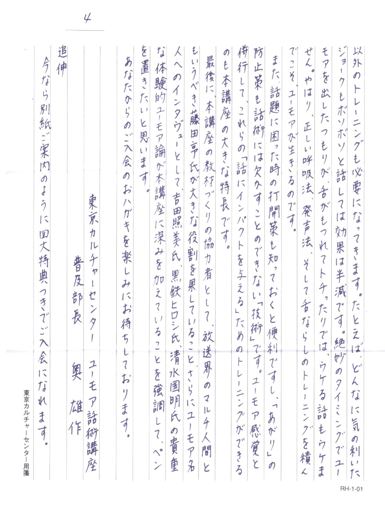 4
以外のトレーニングも必要になってきます。たとえばどんなに気の利いた
ジョークもボソボソと話しては効果は半減です。絶妙のタイミングでユー
モアを出したつもりが舌がもつれてトチッたのでは、ウケる話もウケま
せん。やはり、正しい呼吸法、発声法、そして舌ならしのトレーニングを積ん
でこそユーモアが生きるのです。
また、話題に困った時の打開策も知っておくと便利ですし、「あがり」の
防止策も話術には欠かすことのできない技術です。ユーモア感覚と
併行して、これらの「話にインパクトを与える」ためのトレーニングができる
のも本講座の大きな特長です。
最後に、本講座の教材づくりの協力者として、放送界のマルチ人間と
もいうべき藤田亨氏が大きな役割を果していること、さらにユーモア名
人へのインタヴューとして吉田照美氏、黒鉄ヒロシ氏、清水国明氏の貴重
な体験的ユーモア論が本講座に深みを加えていることを強調して、ペン
を置きたいと思います。
あなたからのご入会のおハガキを楽しみにお待ちしております。
東京カルチャーセンター ユーモア話術講座
普及部長 奥 雄作
追伸
今なら別紙ご案内のように四大特典つきでご入会になれます。
東京カルチャーセンター用箋
RH-1-01